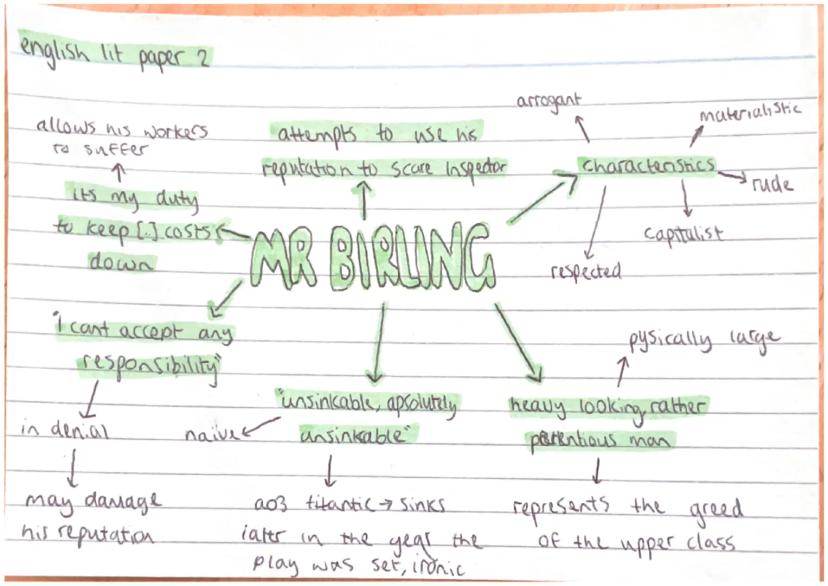 english lit paper 2
allows his workers
to suffer
its my duty
to keep [..] costs
down
attempts to use his
reputation to scare Inspector
arrogant
materialistic
characteristics
rude
capitalist
respected
MR BIRLING
"i cant accept any
responsibility"
in denial
may damage
his reputation
"unsinkable, apsolutely
unsinkable"
naive
ao3 titantic → sinks
later in the year the
play was set, ironic
pysically large
heavy looking, rather
portentious man
represents the greed
of the upper class